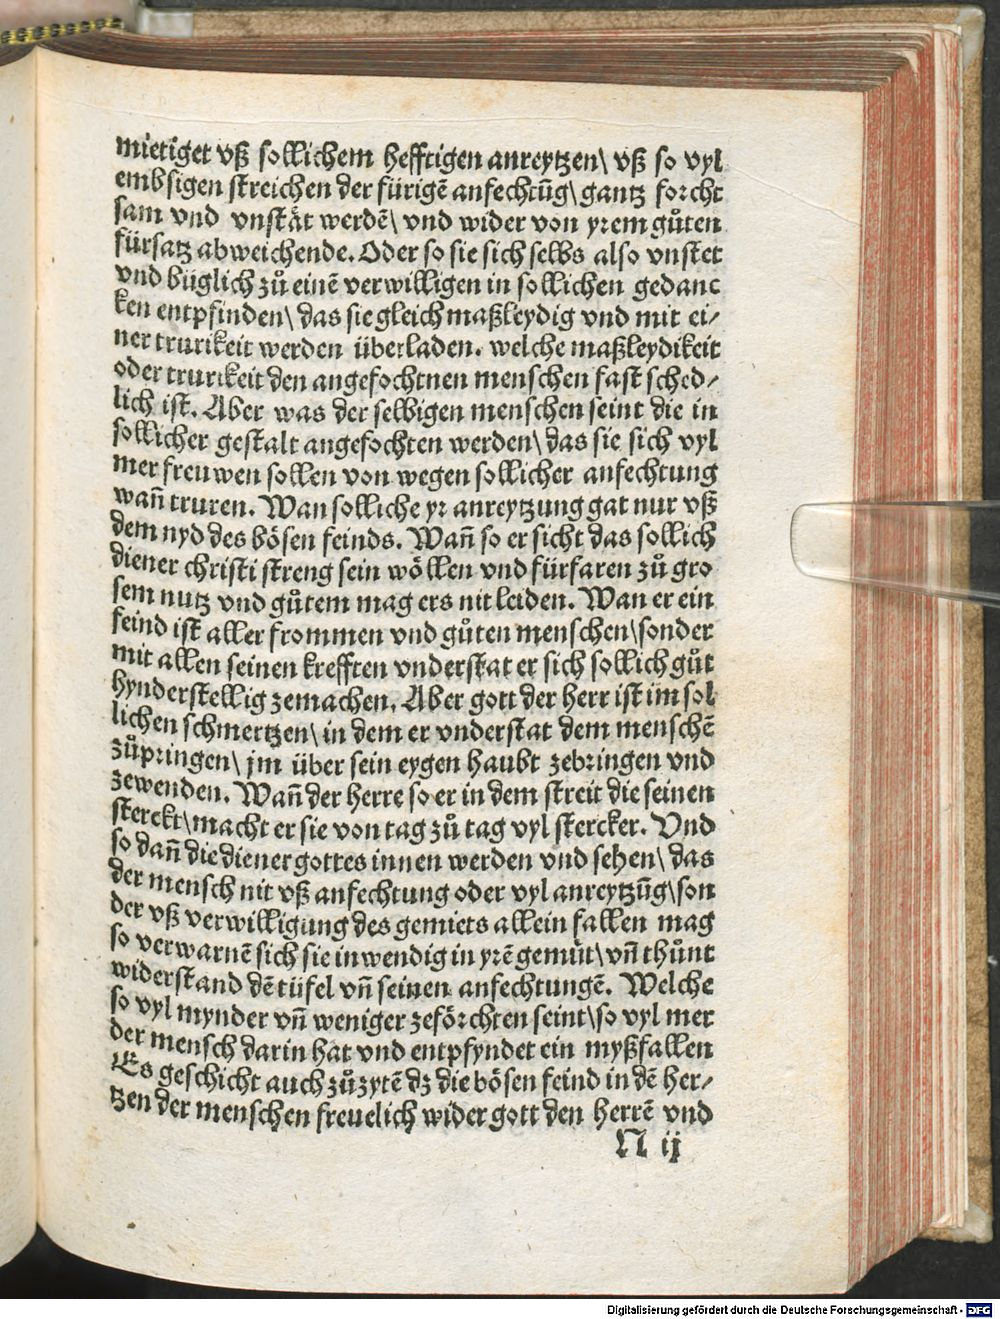 mietiget vß sollichem hefftigen anreytzen\ vß so vyl
embsigen streichen der fürigē anfechtūg\ gantz forcht
sam vnd vnstät werdē\ vnd wider von yrem gůten
fürsatz abweichende. Oder so sie sich selbs also vnstet
vnd büglich zů einē verwilligen in sollichen gedanc
ken entpfinden\ das sie gleich maßleydig vnd mit ei⸗
ner trurikeit werden überladen. welche maßleydikeit
oder trurikeit den angefochtnen menschen fast sched⸗
lich ist. Aber was der selbigen menschen seint die in
sollicher gestalt angefochten werden\ das sie sich vyl
mer freuwen sollen von wegen sollicher anfechtung
wañ truren. Wan solliche yr anreytzung gat nur vß
dem nyd des bösen feinds. Wañ so er sicht das sollich
diener christi streng sein wöllen vnd fürfaren zů gro
sem nutz vnd gůtem mag ers nit leiden. Wan er ein
feind ist aller frommen vnd gůten menschen\ sonder
mit allen seinen krefften vnderstat er sich sollich gůt
hynderstellig zemachen. Aber gott der herr ist im sol
lichen schmertzen\ in dem er vnderstat dem menschē
zůpringen\ jm über sein eygen haubt zebringen vnd
zewenden. Wañ der herre so er in dem streit die seinen
sterckt\ macht er sie von tag zů tag vyl stercker. Vnd
so dañ die diener gottes innen werden vnd sehen\ das
der mensch nit vß anfechtung oder vyl anreytzūg\ son
der vß verwilligung des gemiets allein fallen mag
so verwarnē sich sie inwendig in yrē gemüt\ vñ thůnt
widerstand dē tüfel vñ seinen anfechtungē. Welche
so vyl mynder vñ weniger zeförchten seint\ so vyl mer
der mensch darin hat vnd entpfyndet ein myßfallen
Es geschicht auch zůzytē dz die bösen feind in dē her⸗
tzen der menschen freuelich wider gott den herrē vnd
N ij
Digitalisierung gefördert durch die Deutsche Forschungsgemeinschaft - DFG